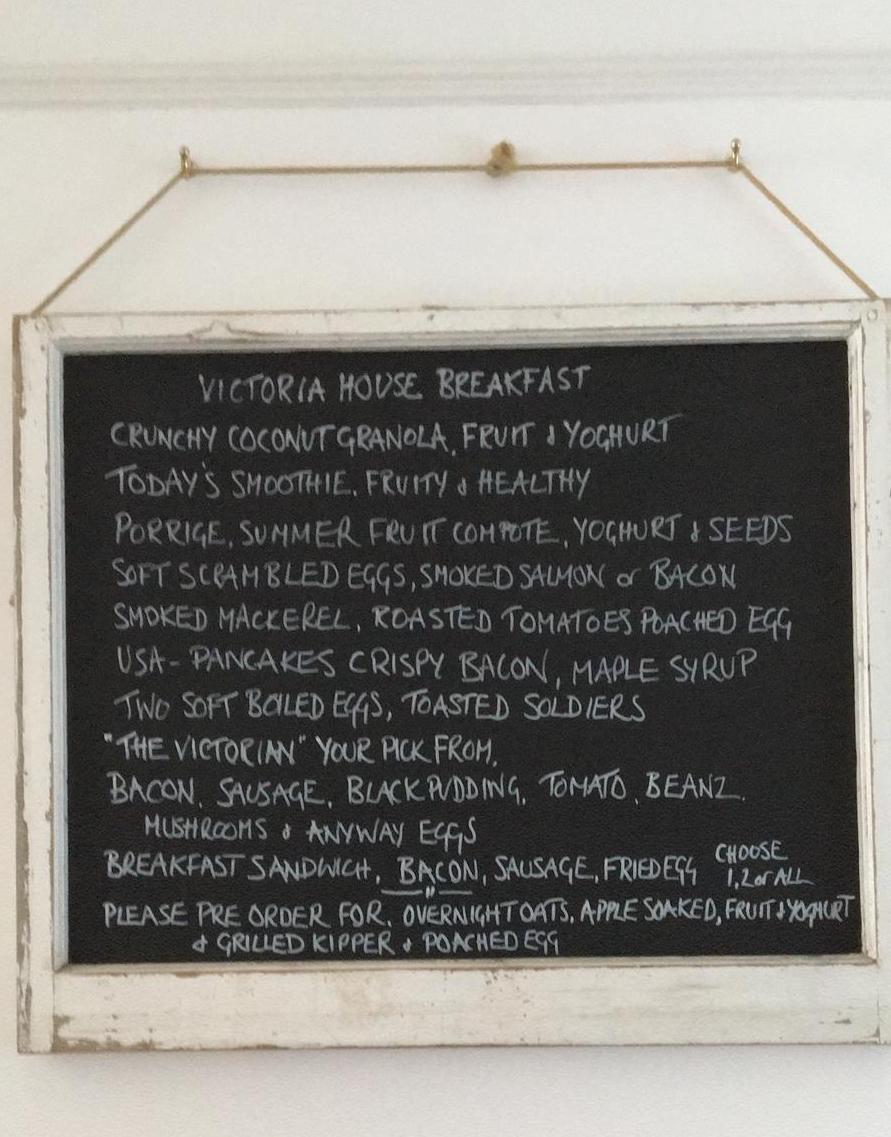 VICTORIA HOUSE BREAKFAST
CRUNCHY COCONUT GRANOLA, FRUIT & YOGHURT
TODAY'S SMOOTHIE, FRUITY & HEALTHY
PORRIGE, SUMMER FRUIT COMPOTE, YOGHURT & SEEDS
SOFT SCRAMBLED EGGS, SMOKED SALMON or BACON
SMOKED MACKEREL, ROASTED TOMATOES POACHED EGG
USA - PANCAKES CRISPY BACON, MAPLE SYRUP
TWO SOFT BOILED EGGS, TOASTED SOLDIERS
"THE VICTORIAN" YOUR PICK FROM,
BACON, SAUSAGE, BLACK PUDDING, TOMATO, BEANZ.
MUSHROOMS & ANYWAY EGGS
BREAKFAST SANDWICH, BACON, SAUSAGE, FRIED EGG CHOOSE
1, 2 or ALL
PLEASE PRE ORDER FOR, OVERNIGHT OATS, APPLE SOAKED, FRUIT & YOGHURT
& GRILLED KIPPER & POACHED EGG